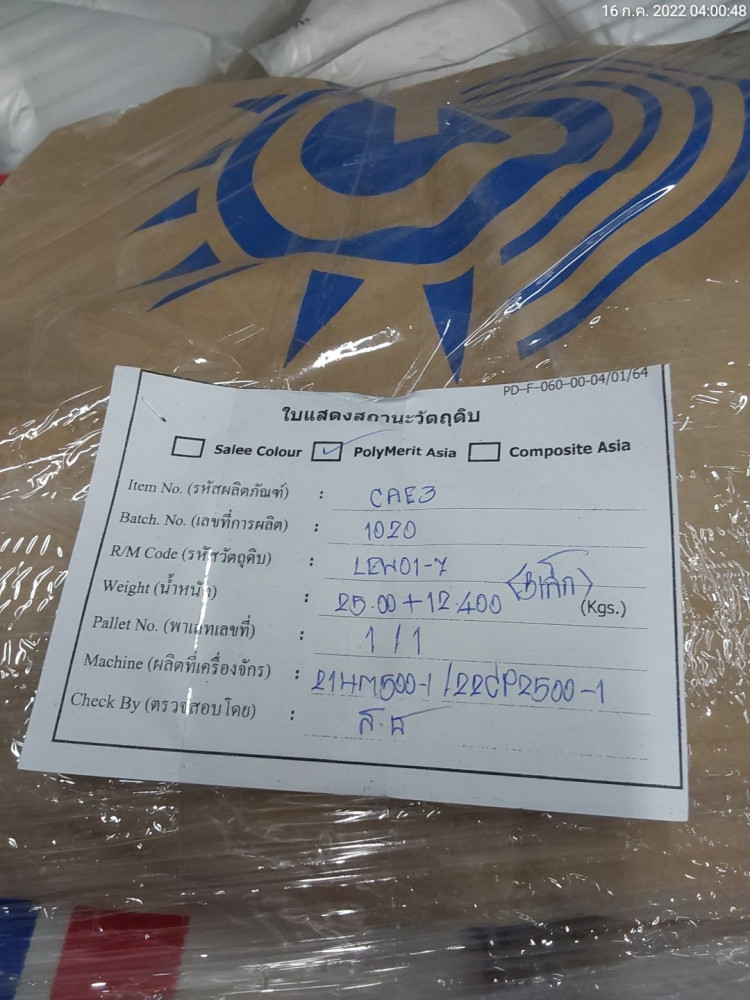 16 ก.ค. 2022 04:00:48
PD-F-060-00-04/01/64
ใบแสดงสถานะวัตถุดิบ
Salee Colour PolyMerit Asia Composite Asia
Item No. (รหัสผลิตภัณฑ์) : CAE3
Batch. No. (เลขที่การผลิต) : 1020
R/M Code (รหัสวัตถุดิบ) : LEW01-7
Weight (น้ำหนัก) : 25.00+12.400 (Kgs.)
Pallet No. (พาเลทเลขที่) : 1/1
Machine (ผลิตที่เครื่องจักร) : 21HM500-1/22CP2500-1
Check By (ตรวจสอบโดย) :